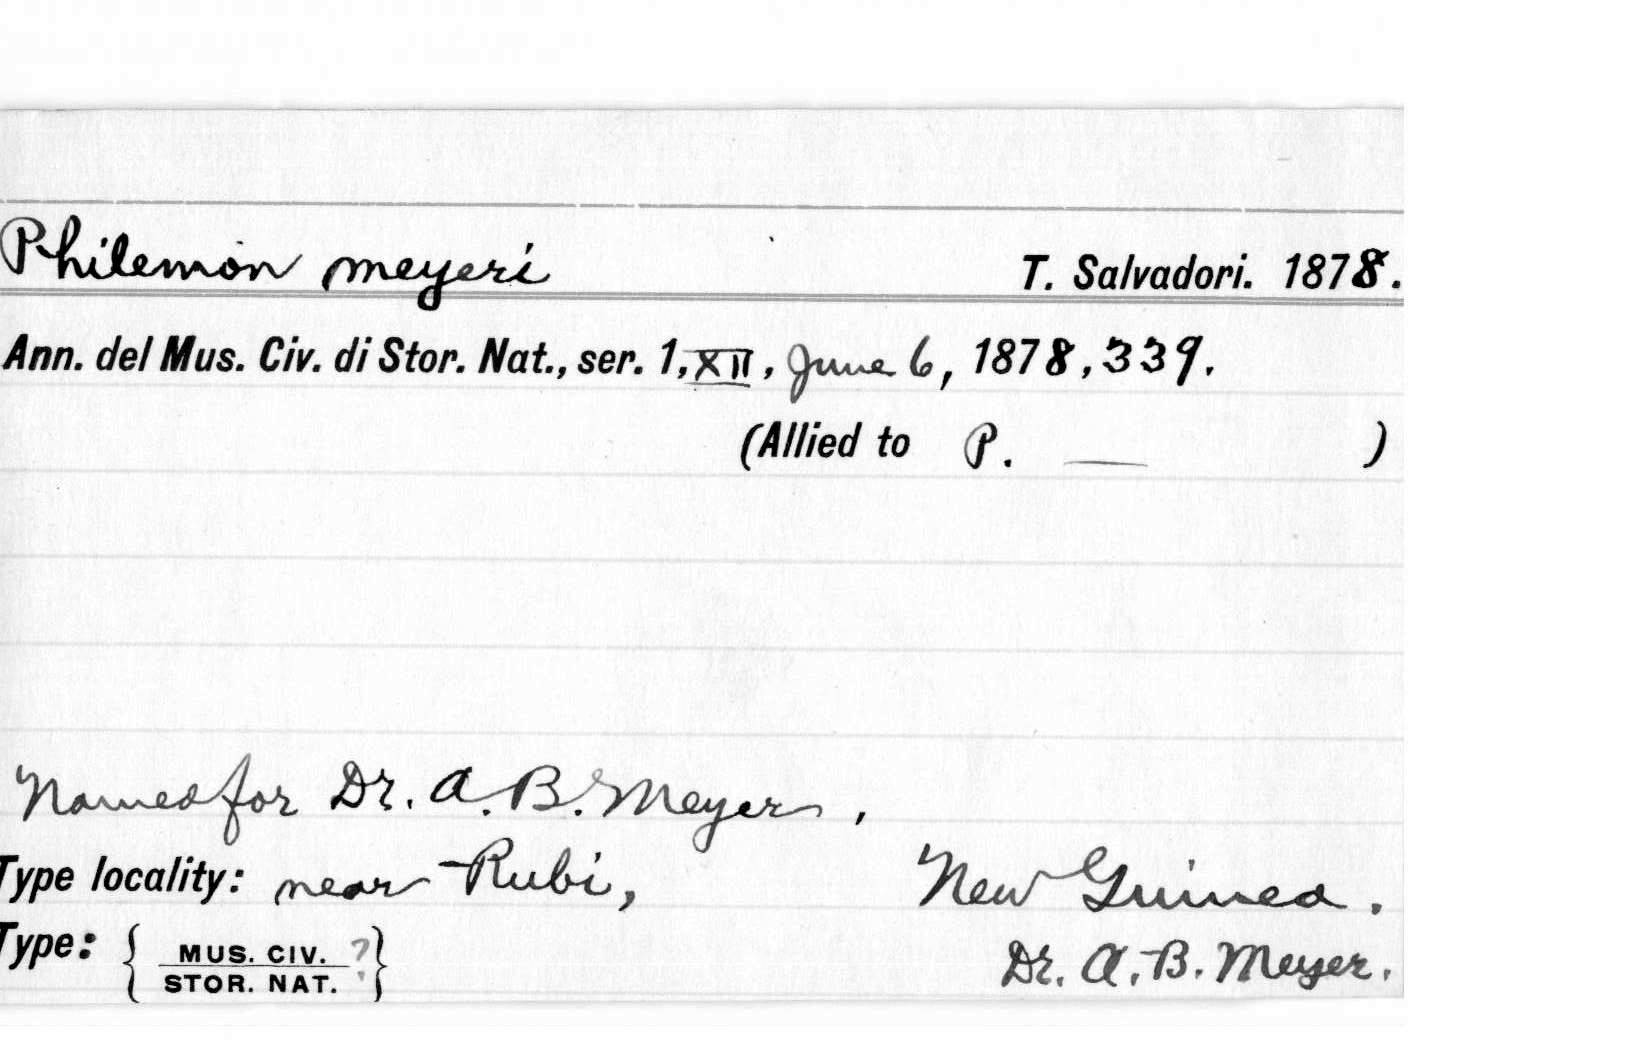 Philemon meyeri T. Salvadori. 1878.
Ann. del Mus. Civ. di Stor. Nat., ser. 1, XII, June 6, 1878, 339.
(Allied to P. — )
Named for Dr. A. B. Meyer,
Type locality: near Rubi, New Guinea.
Type: { MUS. CIV. ? } Dr. A. B. Meyer.
STOR. NAT.